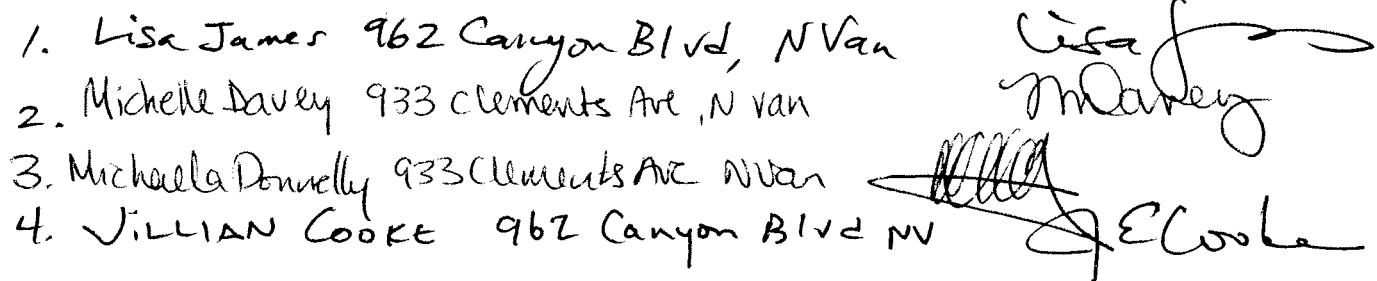 1. Lisa James 962 Canyon Blvd, N Van Lisa J
2. Michelle Davey 933 Clements Ave, N Van MDavey
3. Michaela Donnelly 933 Clements Ave N Van
4. JILLIAN COOKE 962 Canyon Blvd NV J E Cooke